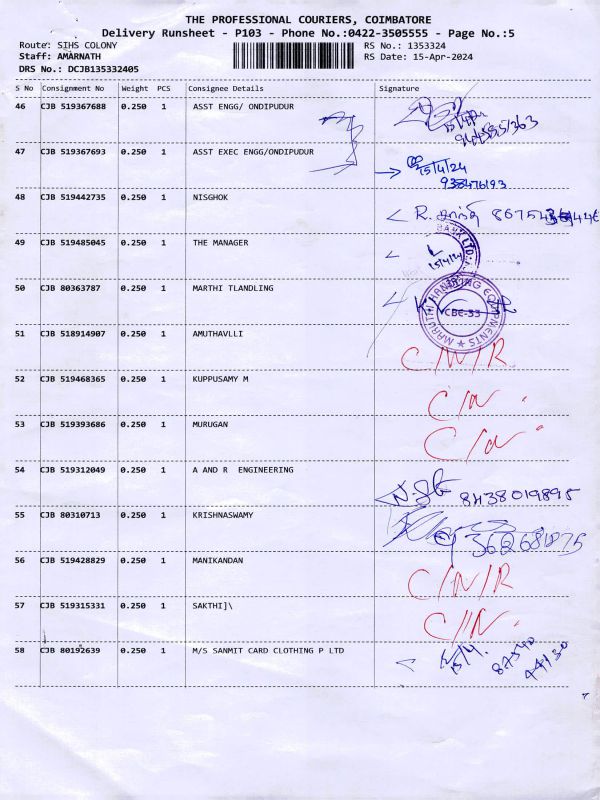 THE PROFESSIONAL COURIERS, COIMBATORE
Delivery Runsheet - P103 - Phone No.:0422-3505555 - Page No.:5
Route: SIHS COLONY RS No.: 1353324
Staff: AMARNATH RS Date: 15-Apr-2024
DRS No.: DCJB135332405
S No Consignment No Weight PCS Consignee Details Signature
46 CJB 519367688 0.250 1 ASST ENGG/ ONDIPUDUR
47 CJB 519367693 0.250 1 ASST EXEC ENGG/ONDIPUDUR
15/4/24
938476193
48 CJB 519442735 0.250 1 NISGHOK
49 CJB 519485045 0.250 1 THE MANAGER
BANK LTD.
15/4/24
50 CJB 80363787 0.250 1 MARTHI TLANDLING
MARUTHI HANDLING EQUIPMENTS
CBE-33
51 CJB 518914907 0.250 1 AMUTHAVLLI C/N/R
52 CJB 519468365 0.250 1 KUPPUSAMY M C/N
53 CJB 519393686 0.250 1 MURUGAN C/N
54 CJB 519312049 0.250 1 A AND R ENGINEERING 8438019895
55 CJB 80310713 0.250 1 KRISHNASWAMY
56 CJB 519428829 0.250 1 MANIKANDAN C/N/R
57 CJB 519315331 0.250 1 SAKTHI]\ C/N
58 CJB 80192639 0.250 1 M/S SANMIT CARD CLOTHING P LTD 15/4. 87540 44130